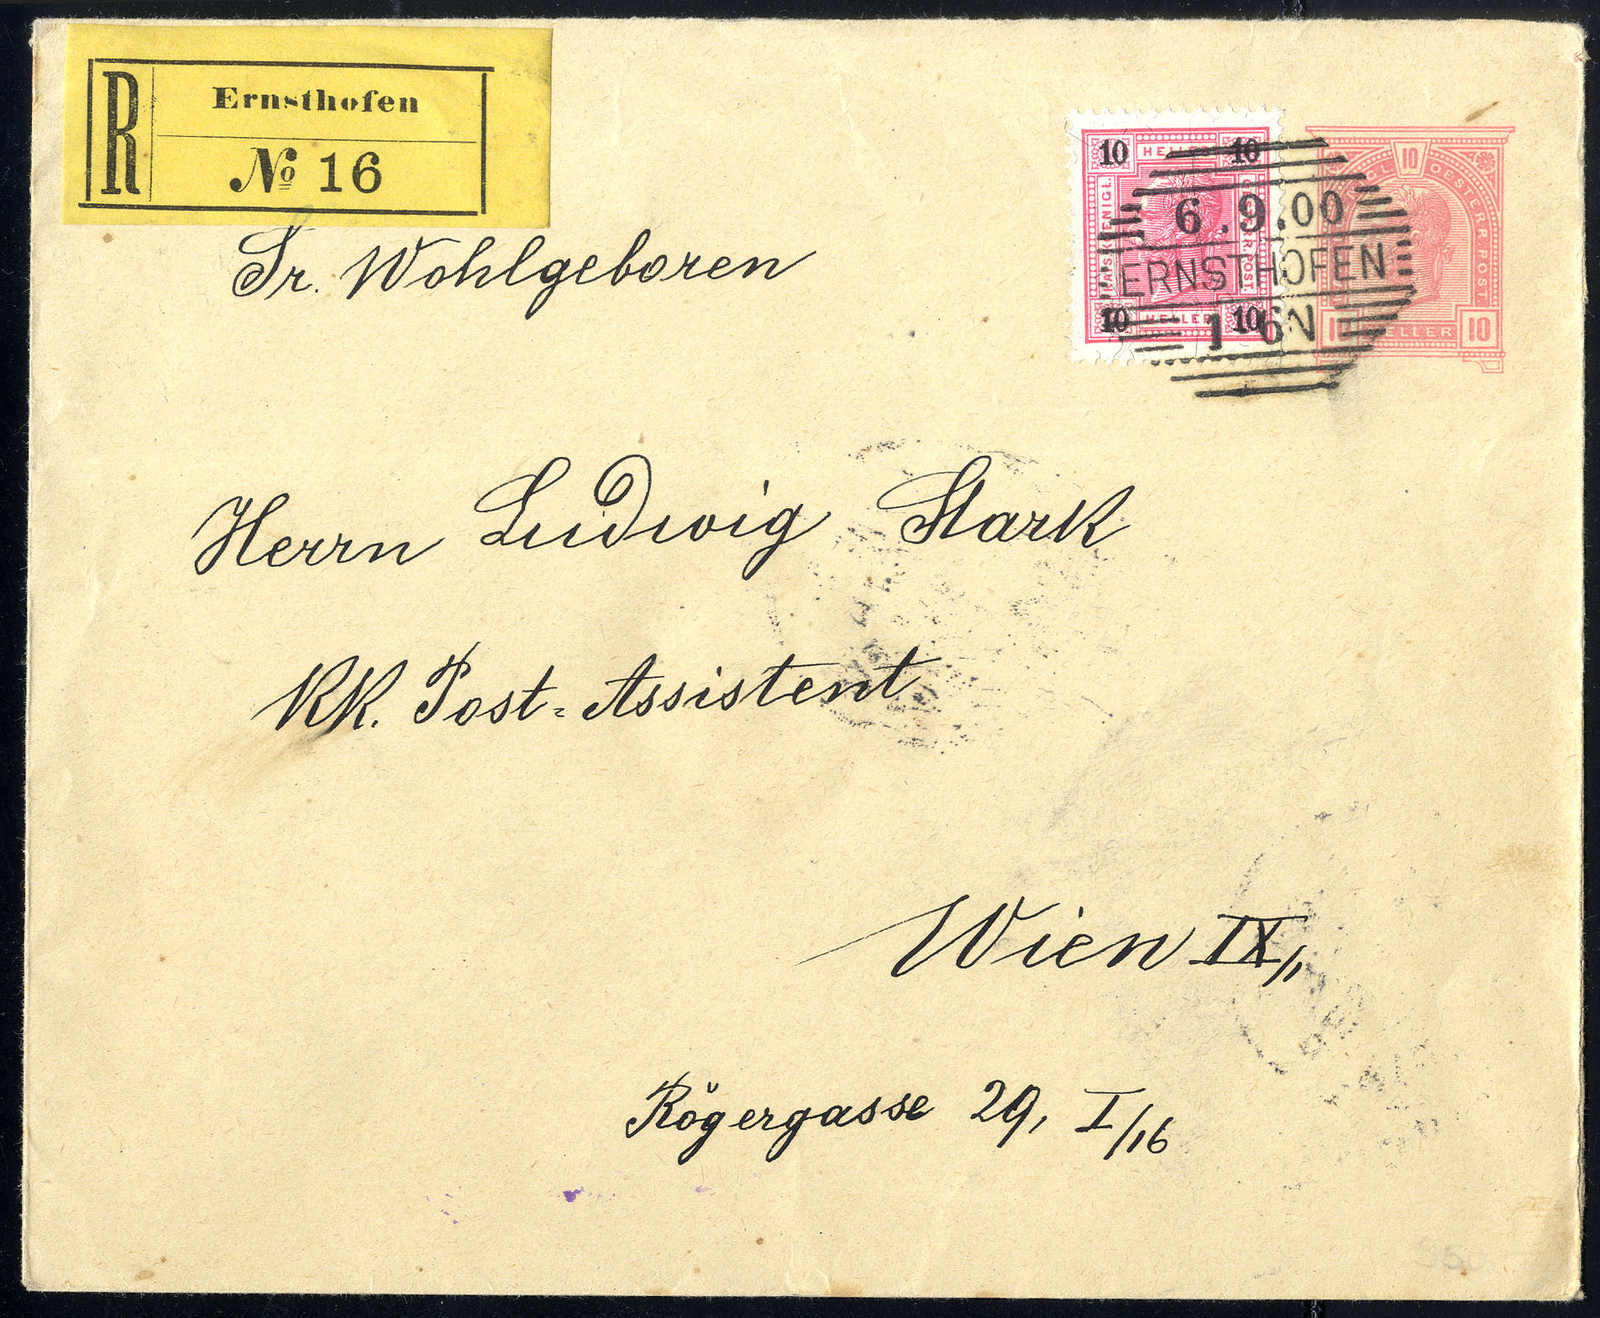 R
Ernsthofen
No 16
10 HELLER 10
KAIS. KÖNIGL.
POST
10 HELLER 10
10
OESTERR. POST
HELLER 10
6.9.00
ERNSTHOFEN
1 6N
Sr. Wohlgeboren
Herrn Ludwig Stark
KK. Post-Assistent
Wien IX/1
Rögergasse 29, I/16